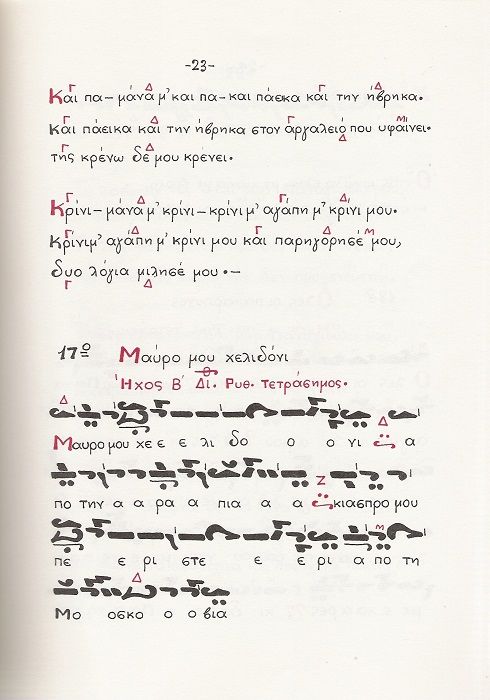 -23-
Και πα-μάνα μ' και πα-και πάεκα και την ήβρηκα.
Και πάεικα και την ήβρηκα στον αργαλειό που υφαίνει.
της κρένω δε μου κρένει.
Κρίνι-μάνα μ' κρίνι-κρίνι μ' αγάπη μ' κρίνι μου.
Κρίνιμ' αγάπη μ' κρίνι μου και παρηγόρησέ μου,
δυο λόγια μίλησέ μου.-
17ο Μαύρο μου χελιδόνι
Ήχος Β΄ Δι. Ρυθ. τετράσημος.
Μαυρο μου χε ε ε λι δο ο ο νι α
πο την α α ρα α πια α α κιασπρο μου
πε ε ρι στε ε ε ρι α πο τη
Μο οσκο ο ο βια